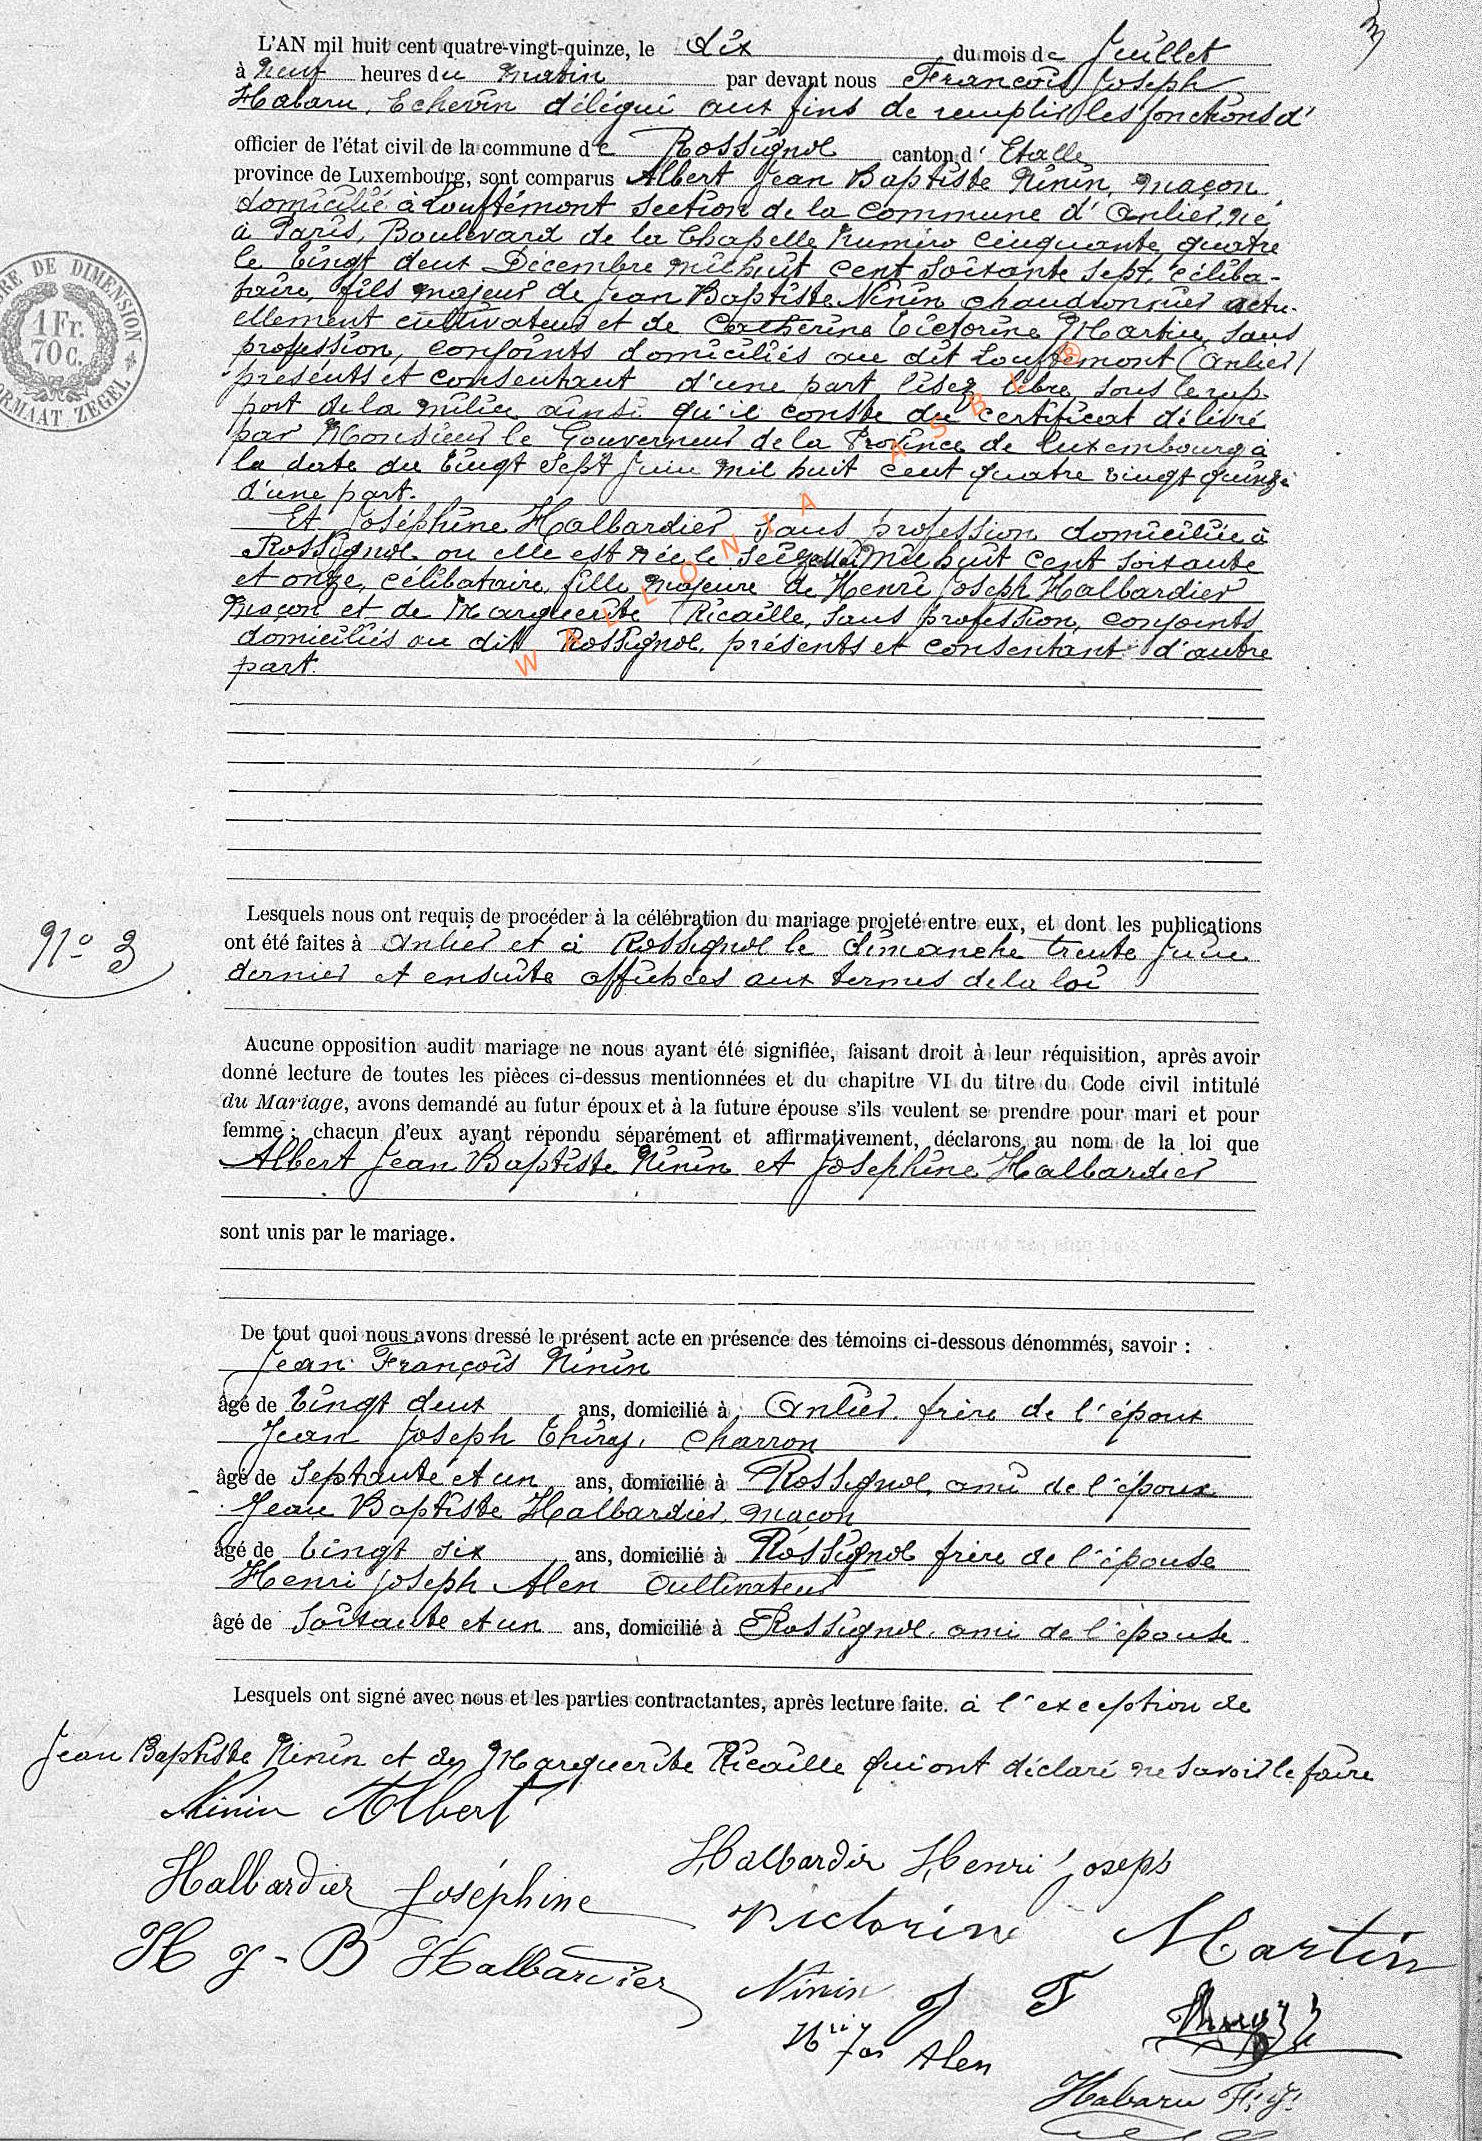 3
L'AN mil huit cent quatre-vingt-quinze, le dix du mois de Juillet
à Neuf heures du matin par devant nous François Joseph
Habaru, Echevin délégué aux fins de remplir les fonctions d'
officier de l'état civil de la commune de Rossignol canton d' Etalle
province de Luxembourg, sont comparus Albert Jean Baptiste Ninin, maçon
domicilié à Louftémont section de la commune d' Anlier, né
à Paris, Boulevard de la Chapelle Numéro cinquante quatre
le vingt deux Décembre mil huit cent soixante sept, céliba-
taire, fils majeur de Jean Baptiste Ninin chaudronnier actu-
ellement cultivateur et de Catherine Victorine Martin, sans
profession, conjoints domiciliés au dit Louftémont (Anlier)
présents et consentant d'une part lisez libre sous le rap-
port de la milice ainsi qu'il conste du certificat délivré
par Monsieur le Gouverneur de la Province de Luxembourg à
la date du vingt sept Juin mil huit cent quatre vingt quinze
d'une part.
Et Joséphine Halbardier sans profession domiciliée à
Rossignol où elle est née le seize mil huit cent soixante
et onze, célibataire, fille majeure de Henri Joseph Halbardier
Maçon et de Marguerite Ricaille, sans profession, conjoints
domiciliés au dit Rossignol, présents et consentant d'autre
part.
WALLONIA ASBL ®
TIMBRE DE DIMENSION
1 Fr.
70 C.
FORMAAT ZEGEL
Lesquels nous ont requis de procéder à la célébration du mariage projeté entre eux, et dont les publications
N° 3
ont été faites à Anlier et à Rossignol le dimanche trente Juin
dernier et ensuite affichées aux termes de la loi
Aucune opposition audit mariage ne nous ayant été signifiée, faisant droit à leur réquisition, après avoir
donné lecture de toutes les pièces ci-dessus mentionnées et du chapitre VI du titre du Code civil intitulé
du Mariage, avons demandé au futur époux et à la future épouse s'ils veulent se prendre pour mari et pour
femme ; chacun d'eux ayant répondu séparément et affirmativement, déclarons au nom de la loi que
Albert Jean Baptiste Ninin et Joséphine Halbardier
sont unis par le mariage.
De tout quoi nous avons dressé le présent acte en présence des témoins ci-dessous dénommés, savoir :
Jean François Ninin
âgé de vingt deux ans, domicilié à Anlier. frère de l'époux
Jean Joseph Thiry, charron
âgé de septante et un ans, domicilié à Rossignol, ami de l'époux
Jean Baptiste Halbardier, maçon
âgé de vingt six ans, domicilié à Rossignol frère de l'épouse
Henri Joseph Alen cultivateur
âgé de soixante et un ans, domicilié à Rossignol, ami de l'épouse
Lesquels ont signé avec nous et les parties contractantes, après lecture faite. à l'exception de
Jean Baptiste Ninin et de Marguerite Ricaille qui ont déclaré ne savoir le faire
Ninin Albert
Halbardier Henri Joseph
Halbardier Joséphine
Victorine Martin
H J-B Halbardier
Ninin J F
Hri Jos Alen
Habaru F. J.